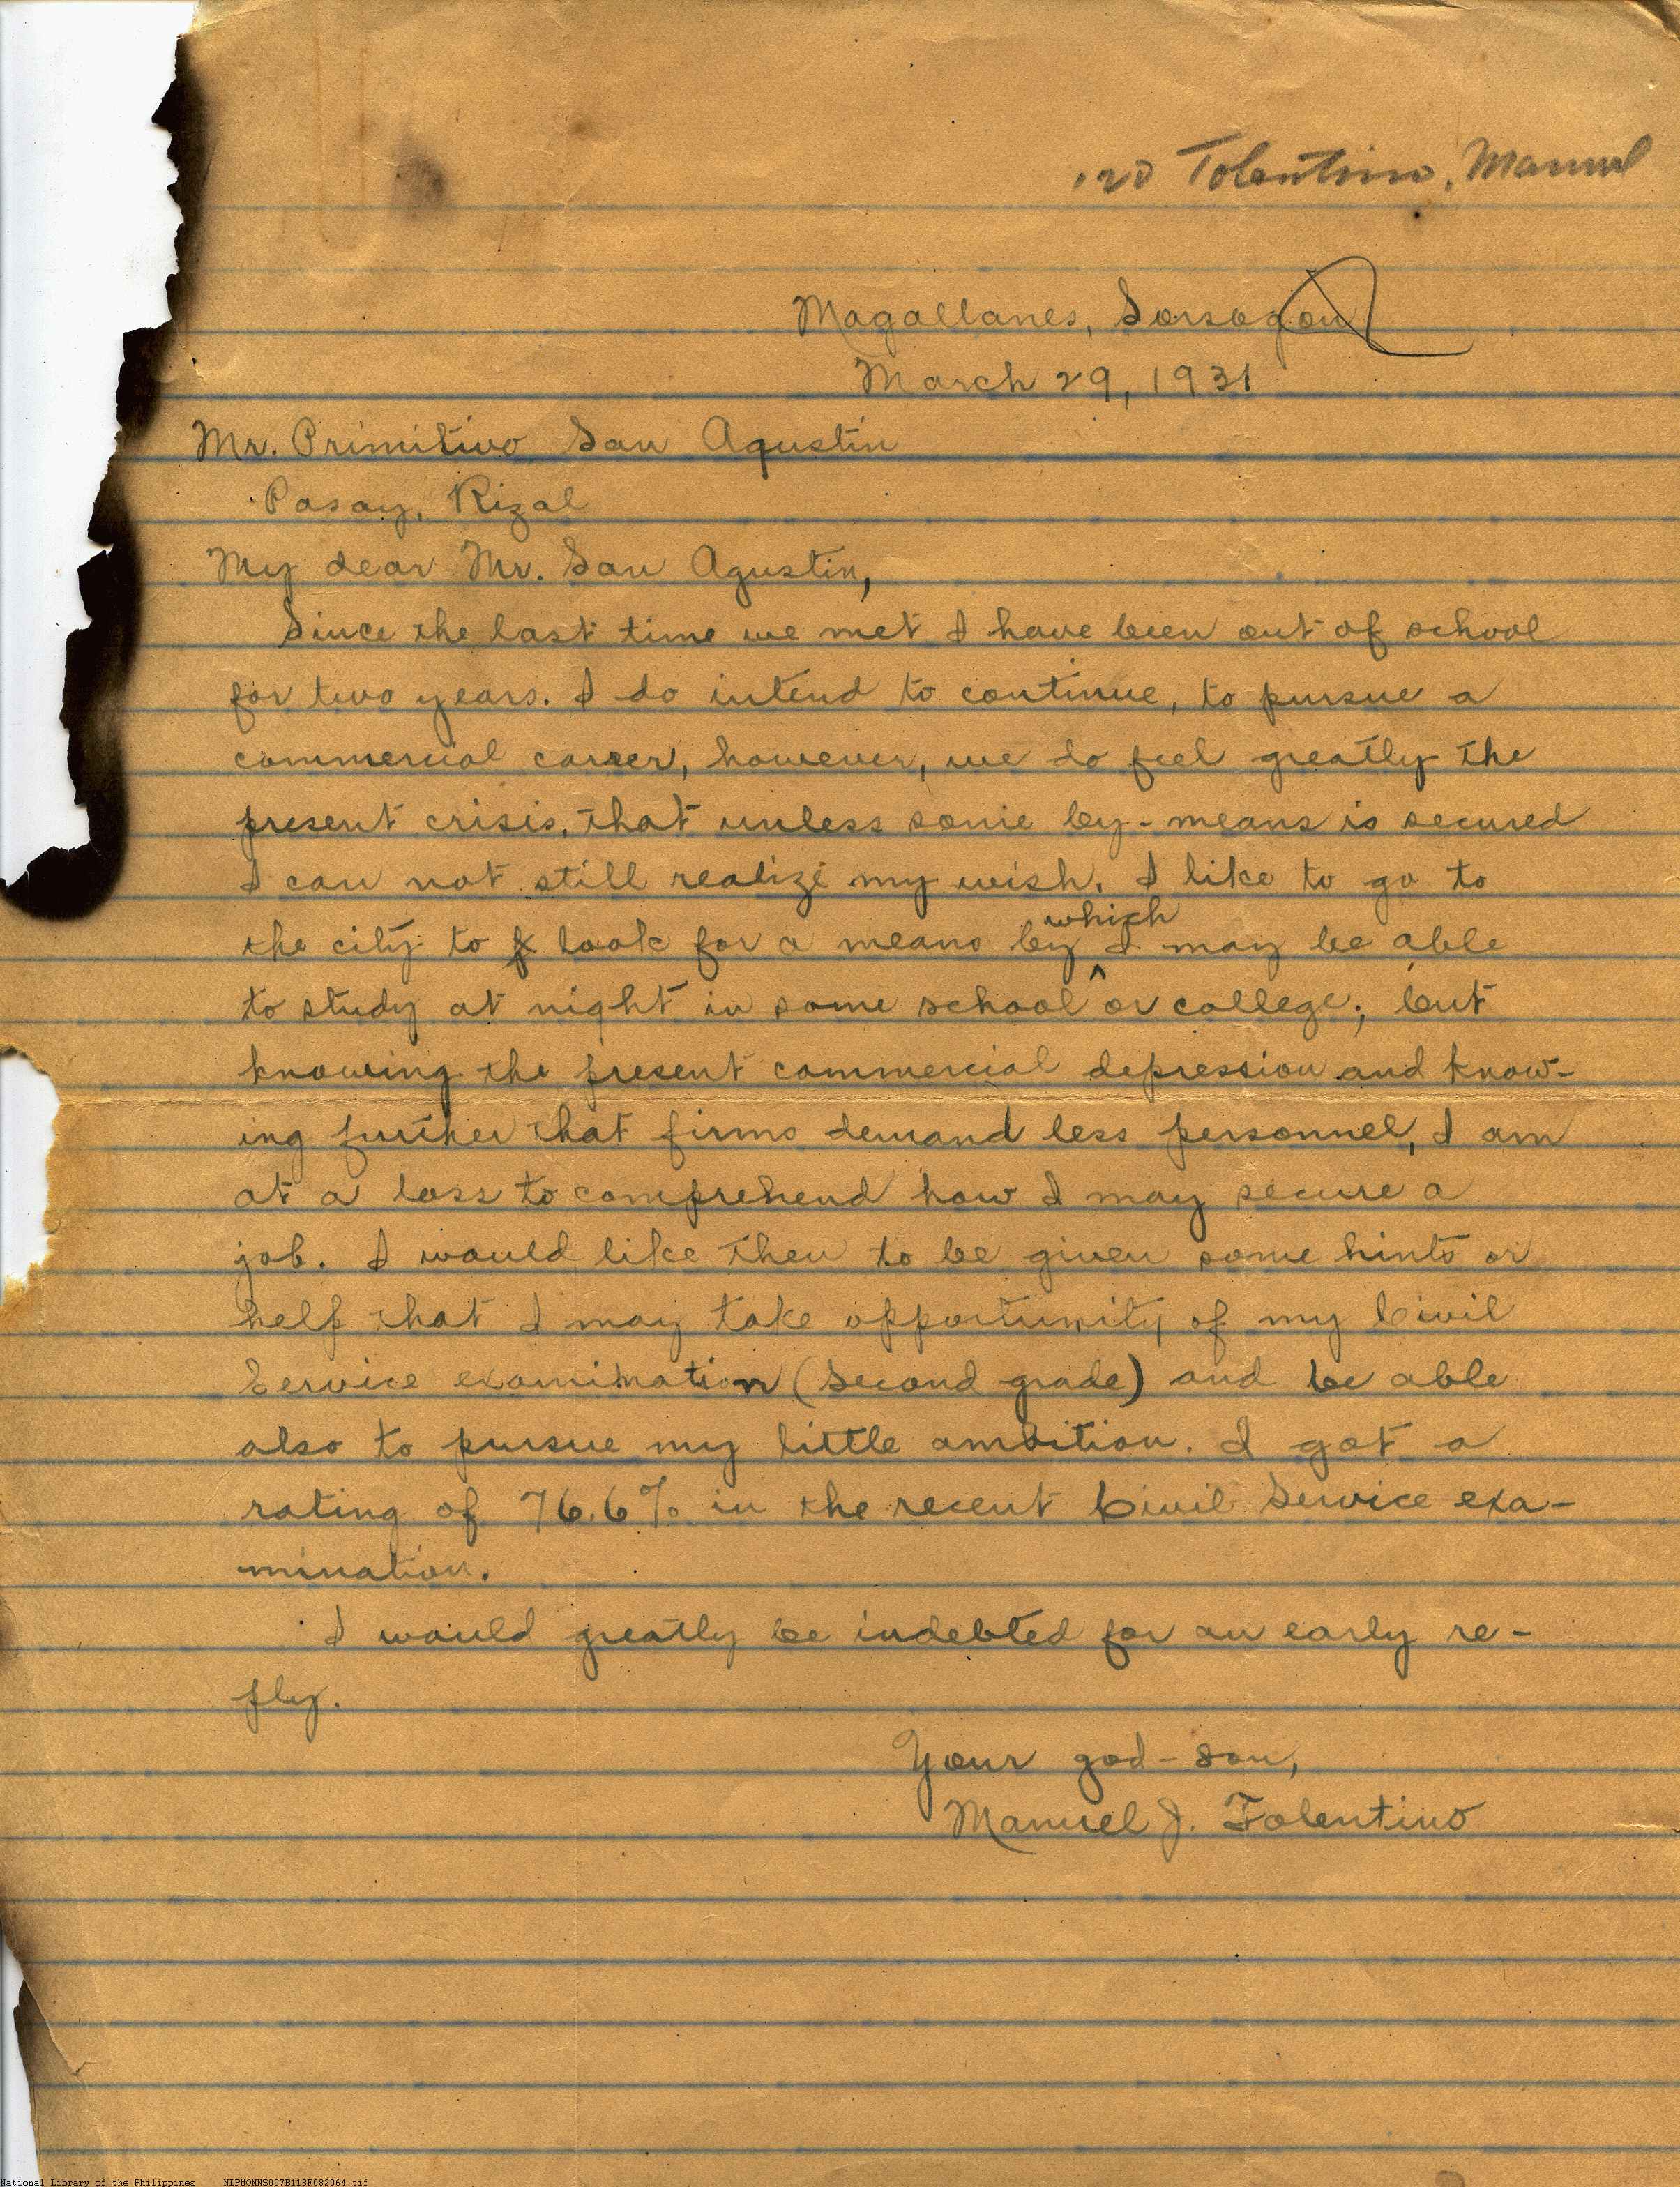 Tolentino, Manuel
Magallanes, Sorsogon
March 29, 1931
Mr. Primitivo San Agustin
Pasay, Rizal
My dear Mr. San Agustin,
Since the last time we met I have been out of school
for two years. I do intend to continue, to pursue a
commercial career, however, we do feel greatly the
present crisis, that unless some by-means is secured
I can not still realize my wish. I like to go to
the city to look for a means by which I may be able
to study at night in some school or college; but
knowing the present commercial depression and know-
ing further that firms demand less personnel, I am
at a loss to comprehend how I may secure a
job. I would like then to be given some hints or
help that I may take opportunity of my Civil
Service examination (second grade) and be able
also to pursue my little ambition. I got a
rating of 76.6% in the recent Civil Service exa-
mination.
I would greatly be indebted for an early re-
ply.
Your god-son,
Manuel J. Tolentino
National Library of the Philippines NLPMQMNS007B118F082064.tif